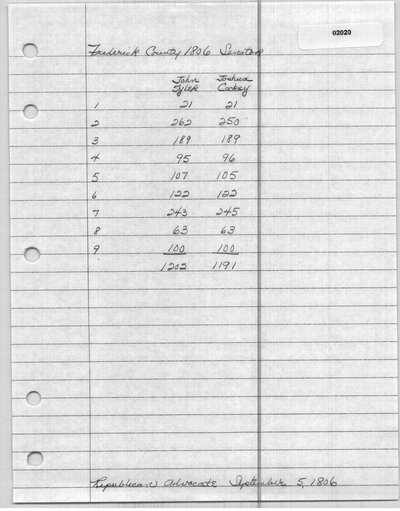 02020
Frederick County 1806 Senator
John Joshua
Tyler Cockey
1 21 21
2 262 250
3 189 189
4 95 96
5 107 105
6 122 122
7 243 245
8 63 63
9 100 100
1202 1191
Republican Advocate September 5, 1806